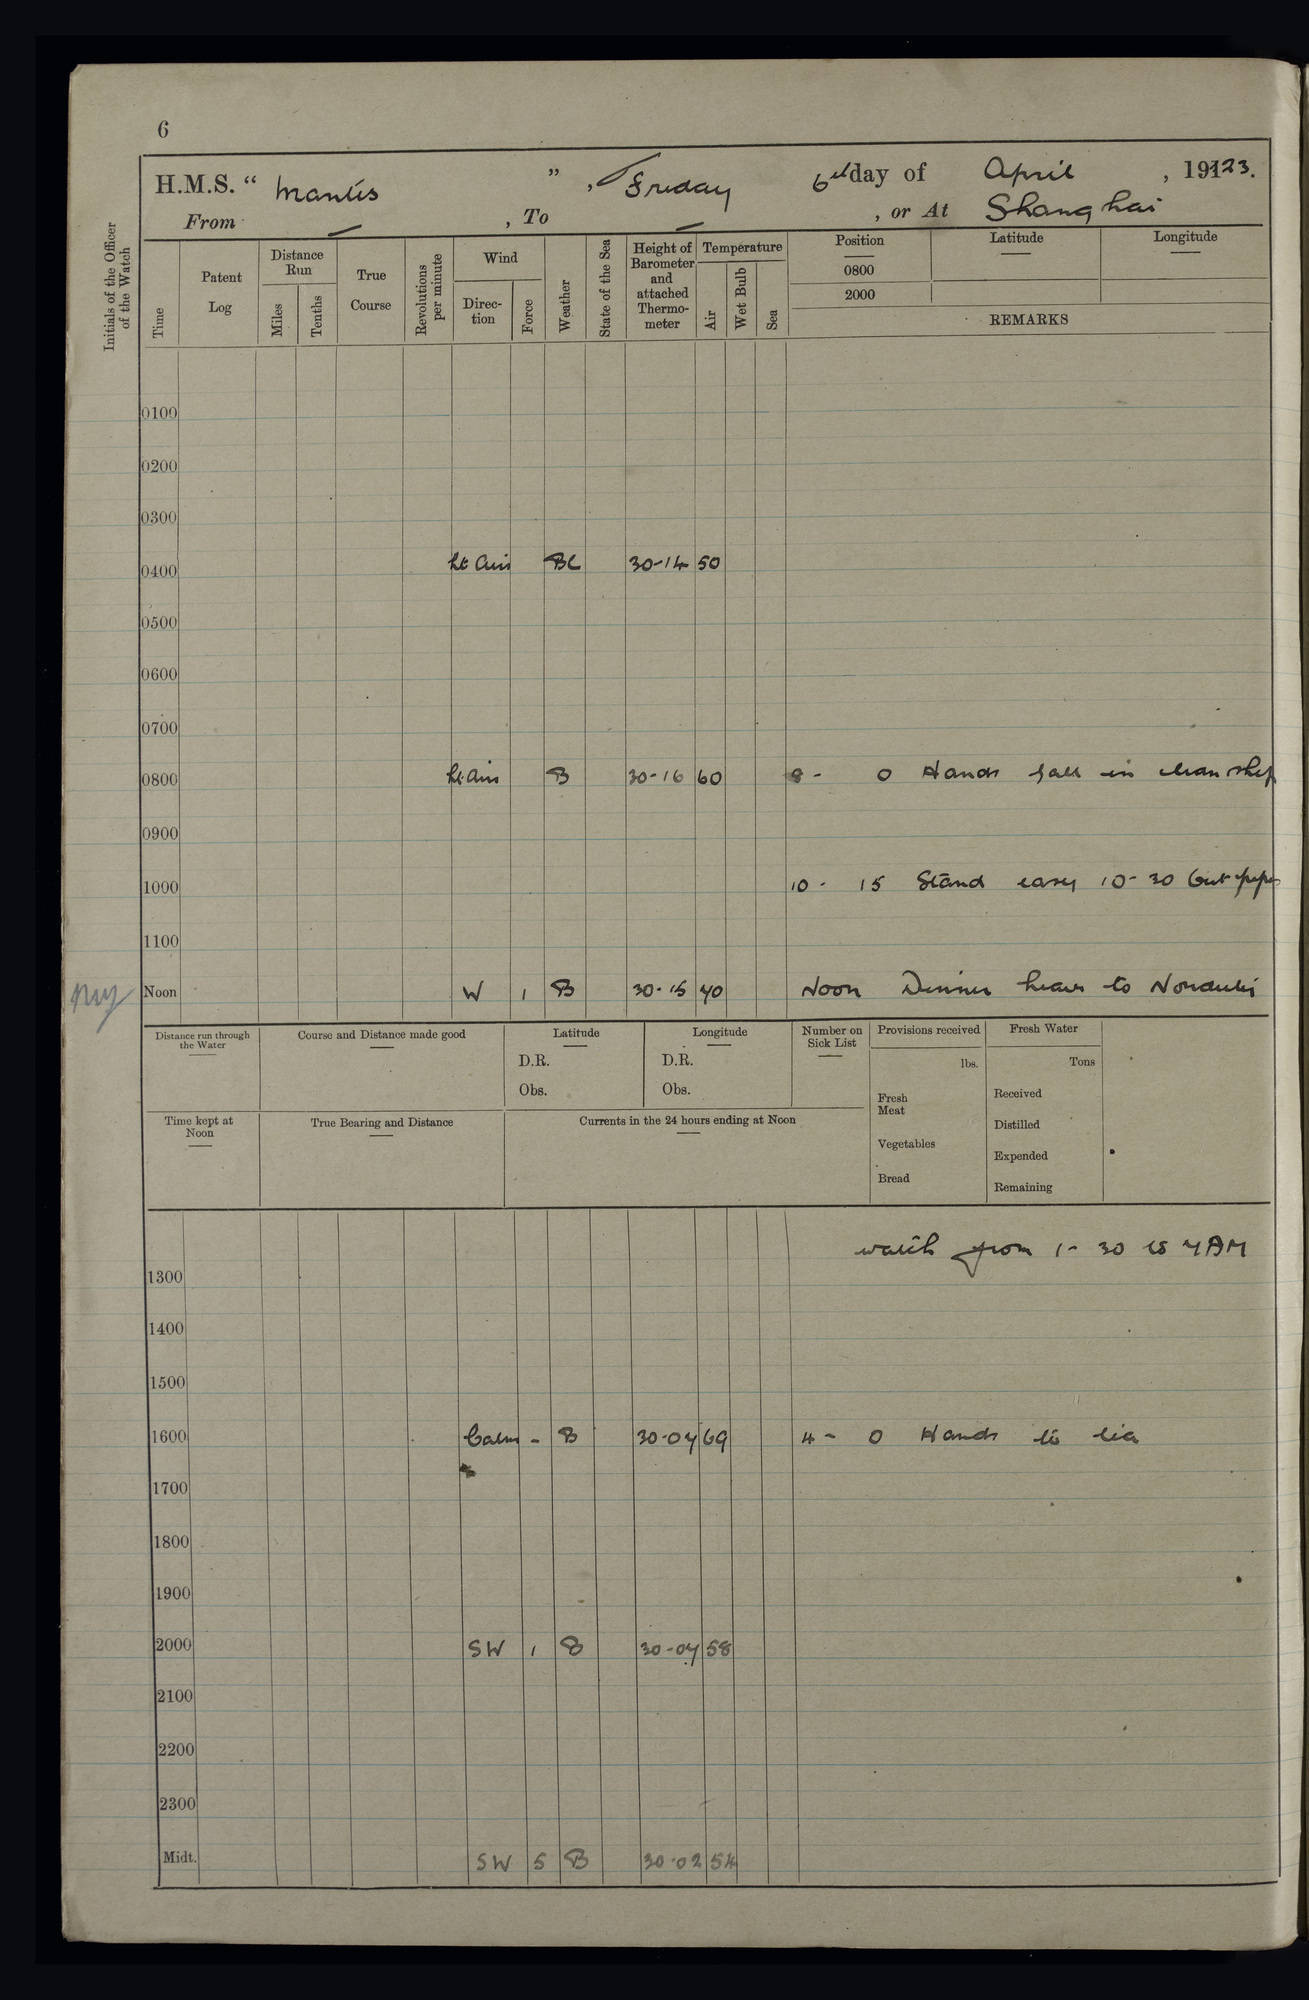 6
H.M.S. “ Mantis ” , Friday 6th day of April , 19123.
From — , To — , or At Shanghai
Initials of the Officer of the Watch
Time
Patent Log
Distance Run
Miles
Tenths
True Course
Revolutions per minute
Wind
Direc-tion
Force
Weather
State of the Sea
Height of Barometer and attached Thermo-meter
Temperature
Air
Wet Bulb
Sea
Position
0800
2000
Latitude
Longitude
REMARKS
0100
0200
0300
0400 Lt Airs BC 30-14 50
0500
0600
0700
0800 Lt Airs B 30-16 60 8 - 0 Hands fall in clean ship
0900
1000 10 - 15 Stand easy 10-30 Out pipes
1100
Noon W 1 B 30-15 70 Noon Dinner leave to
Distance run through the Water
Course and Distance made good
Latitude
D.R.
Obs.
Longitude
D.R.
Obs.
Number on Sick List
Provisions received
lbs.
Fresh Meat
Vegetables
Bread
Fresh Water
Tons
Received
Distilled
Expended
Remaining
Time kept at Noon
True Bearing and Distance
Currents in the 24 hours ending at Noon
watch from 1-30 to 7AM
1300
1400
1500
1600 Calm - B 30-07 69 4 - 0 Hands to tea
1700
1800
1900
2000 SW 1 B 30-07 58
2100
2200
2300
Midt. SW 5 B 30-02 54